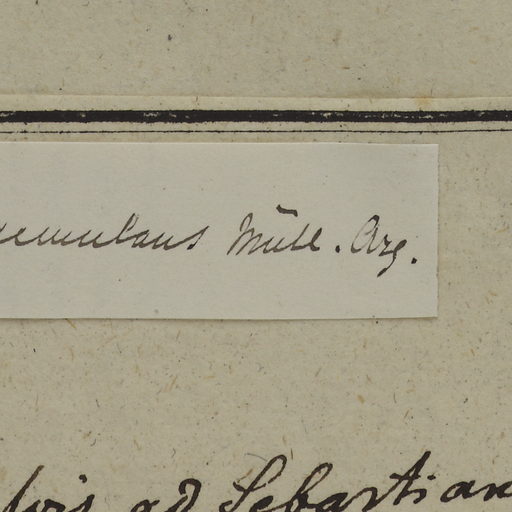 aemulans Müll. Arg.
ad Sebastian